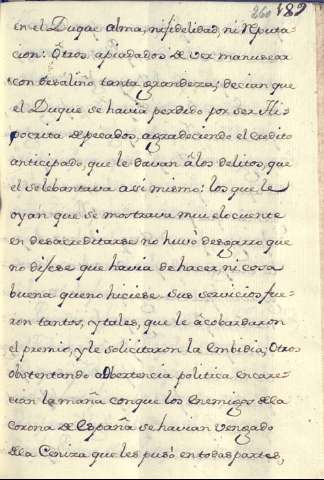 260 189
en el Duque alma, ni fidelidad, ni Reputa-
cion: Otros apiadados de ver manusear
con desaliño tanta grandeza; decian que
el Duque se havia perdido por ser Hi-
pocrita de pecados, agradeciendo el credito
anticipado, que le davan â los delitos, que
el se lebantava asi mismo: los que le
oyan que se mostrava mui elocuente
en desacreditarse no huvo desgarro que
no dijese que havia de hacer, ni cosa
buena que no hiciese. Sus servicios fue-
ron tantos, y tales, que le acobardaron
el premio, y le solicitaron la Embidia, Otros
obstentando adbertencia politica encare-
cian la maña conque los Enemigos de la
Corona de España se havian vengado
de la Ceniza que les pusó en todas partes,